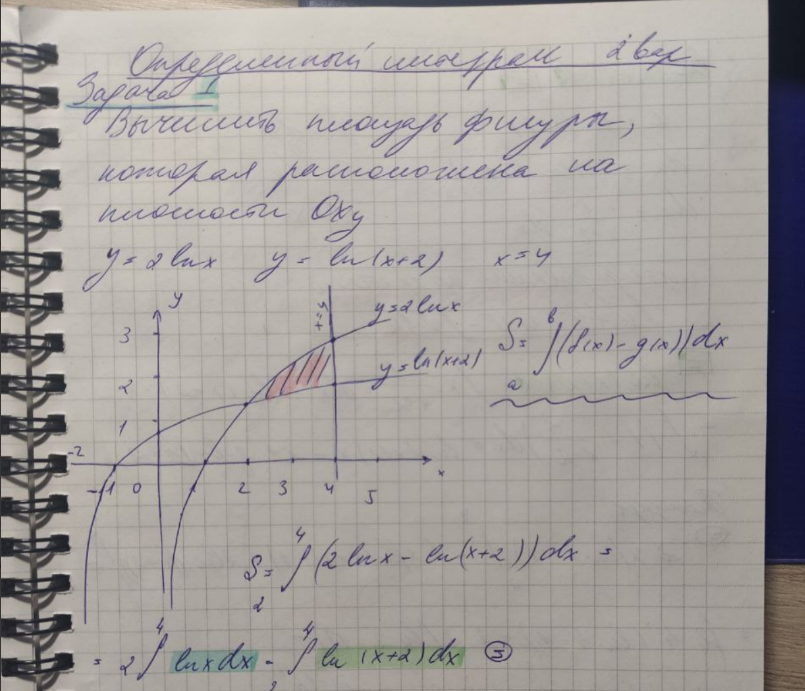 Определенный интеграл 2 вар
Задача 1
Вычислить площадь фигуры,
которая расположена на
плоскости Oxy
y = 2lnx y = ln(x+2) x = 4
y
x=4
y=2lnx
3
S = ∫ₐᵇ (f(x) - g(x)) dx
2
y=ln(x+2)
1
-2
-1 0 1 2 3 4 5 x
S = ∫₂⁴ (2lnx - ln(x+2)) dx =
= 2 ∫⁴ lnx dx - ∫₂⁴ ln (x+2) dx =